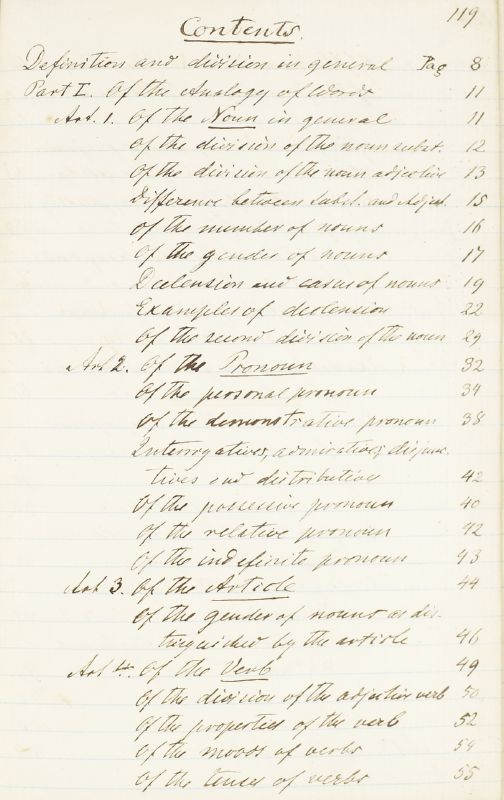 119
Contents.
Definition and division in general Pag 8
Part I. Of the Analogy of Words 11
Art. 1. Of the Noun in general 11
Of the division of the noun subst. 12
Of the division of the noun adjective 13
Difference between subst. and Adject. 15
Of the number of nouns 16
Of the gender of nouns 17
Declension and cases of nouns 19
Examples of declension 22
Of the second division of the noun 29
Art 2. Of the Pronoun 32
Of the personal pronoun 34
Of the demonstrative pronoun 38
Interrogatives, admiratives, disjunc-
tives and distributive 42
Of the possessive pronoun 40
Of the relative pronoun 42
Of the indefinite pronoun 43
Art 3. Of the Article 44
Of the gender of nouns as dis-
tinguished by the article 46
Art 4. Of the Verb 49
Of the division of the adjective verb 50
Of the properties of the verb 52
Of the moods of verbs 54
Of the tenses of verbs 55